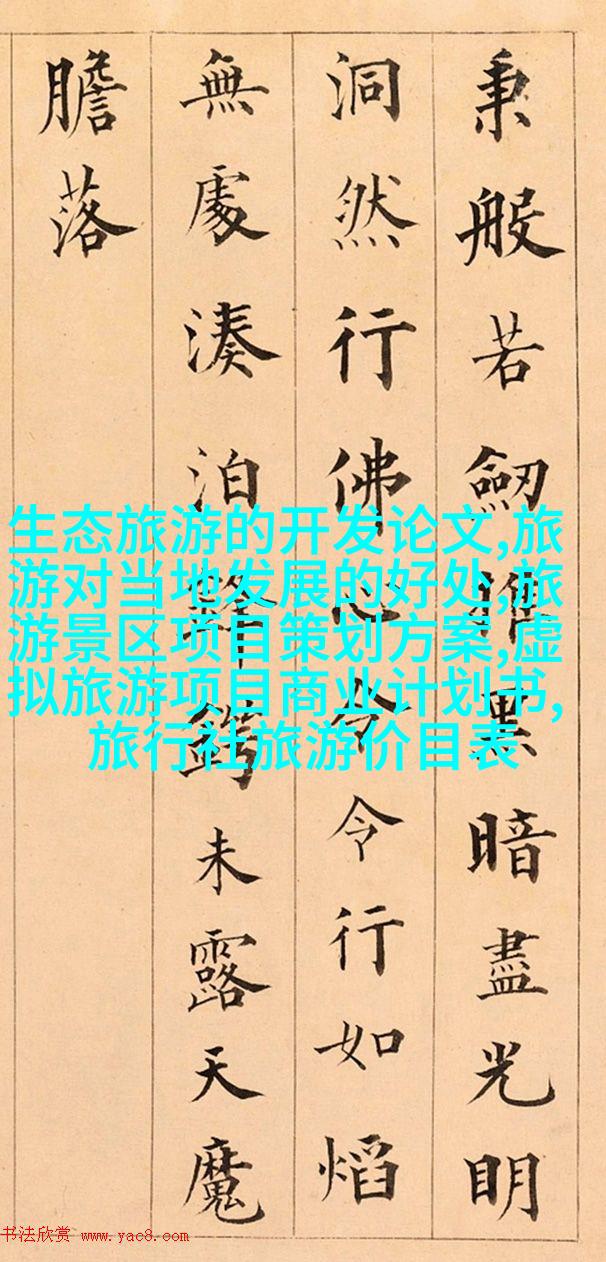 秉般若劒黑暗盡光明
洞然行佛心令令行如熖
無處湊泊鋒鍔未露天魔
膽落
生态旅游的开发论文,旅
游对当地发展的好处,旅
游景区项目策划方案,虚
拟旅游项目商业计划书,
旅行社旅游价目表
书法欣赏 www.yac8.com